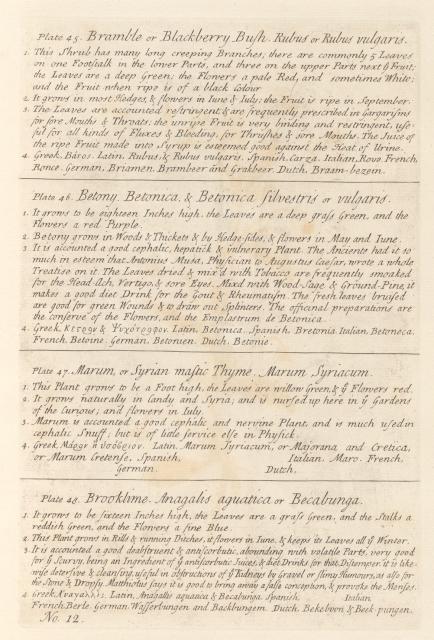 Plate 45. Bramble or Blackberry Bush. Rubus or Rubus vulgaris.
1. This Shrub has many long creeping Branches, there are commonly 5 Leaves
on one Footstalk in the lower Parts, and three on the upper Parts next ye Fruit;
the Leaves are a deep Green; the Flowers a pale Red, and sometimes White;
and the Fruit when ripe is of a black Colour
2. It grows in most Hedges, & flowers in Iune & Iuly; the Fruit is ripe in September.
3. The Leaves are accounted restringent, & are frequently prescribed in Gargarisms
for sore Mouths & Throats; the unripe Fruit is very binding and restringent, use-
ful for all kinds of Fluxes & Bleeding, for Thrushes & sore Mouths. The Juice of
the ripe Fruit made into Syrup is esteemed good against the Heat of Urine.
4. Greek, Latin, Rubus, & Rubus vulgaris. Spanish, Carza. Italian, Rovo. French,
Ronce. German, Briamen, Brambeer and Grakbeer. Dutch, Braam-bezein.
Plate 46. Betony. Betonica, & Betonica silvestris or vulgaris.
1. It grows to be eighteen Inches high, the Leaves are a deep grass Green, and the
Flowers a red Purple.
2. Betony grows in Woods & Thickets & by Hedge-sides, & flowers in May and Iune.
3. It is accounted a good cephalic, hepatick & vulnerary Plant. The Ancients had it so
much in esteem that Antonius Musa, Physician to Augustus Caesar, wrote a whole
Treatise on it. The Leaves dried & mix'd with Tobacco are frequently smoaked
for the Head-Ach, Vertigo, & sore Eyes. Mixd with Wood-Sage & Ground-Pine, it
makes a good diet Drink for the Gout & Rheumatism. The fresh leaves bruised
are good for green Wounds & to draw out Splinters. The officinal preparations are
the conserve of the Flowers, and the Emplastrum de Betonica.
4. Greek, Κεστρον & Ψυχότροφον. Latin, Betonica. Spanish, Bretonia. Italian, Betoneca.
French, Betoine. German, Betonien. Dutch, Betonie.
Plate 47. Marum, or Syrian mastic Thyme. Marum Syriacum.
1. This Plant grows to be a Foot high, the Leaves are willow Green, & ye Flowers red.
2. It grows naturally in Candy and Syria; and is nursed up here in ye Gardens
of the Curious; and flowers in Iuly.
3. Marum is accounted a good cephalic and nervine Plant, and is much used in
cephalic Snuff; but is of little service else in Physick.
4. Greek, Latin, Marum Syriacum, or Majorana and Cretica,
or Marum Cretense, Spanish, Italian. Maro. French.
German. Dutch.
Plate 48. Brooklime. Anagalis aquatica or Becabunga.
1. It grows to be sixteen Inches high, the Leaves are a grass Green, and the Stalks a
reddish Green, and the Flowers a fine Blue.
2. This Plant grows in Rills & running Ditches, it flowers in Iune, & keeps its Leaves all ye Winter.
3. It is accounted a good deobstruent & antiscorbutic, abounding with volatile Parts, very good
for ye Scurvy, being an Ingredient of ye antiscorbutic Juices, & diet Drinks for that Distemper. it is like-
wise detersive & cleansing, useful in obstructions of ye Kidneys by Gravel or slimy Humours, as also for
the Stone & Dropsy. Matthiolus says it is good to bring away a false conception, & provoke the Menses.
4. Greek, Latin, Anagallis aquatica & Becabunga. Spanish, Italian
French, Berle. German. Wasserbungen and Backbungen. Dutch. Bekeboon, & Beek-pungen.
No. 12.